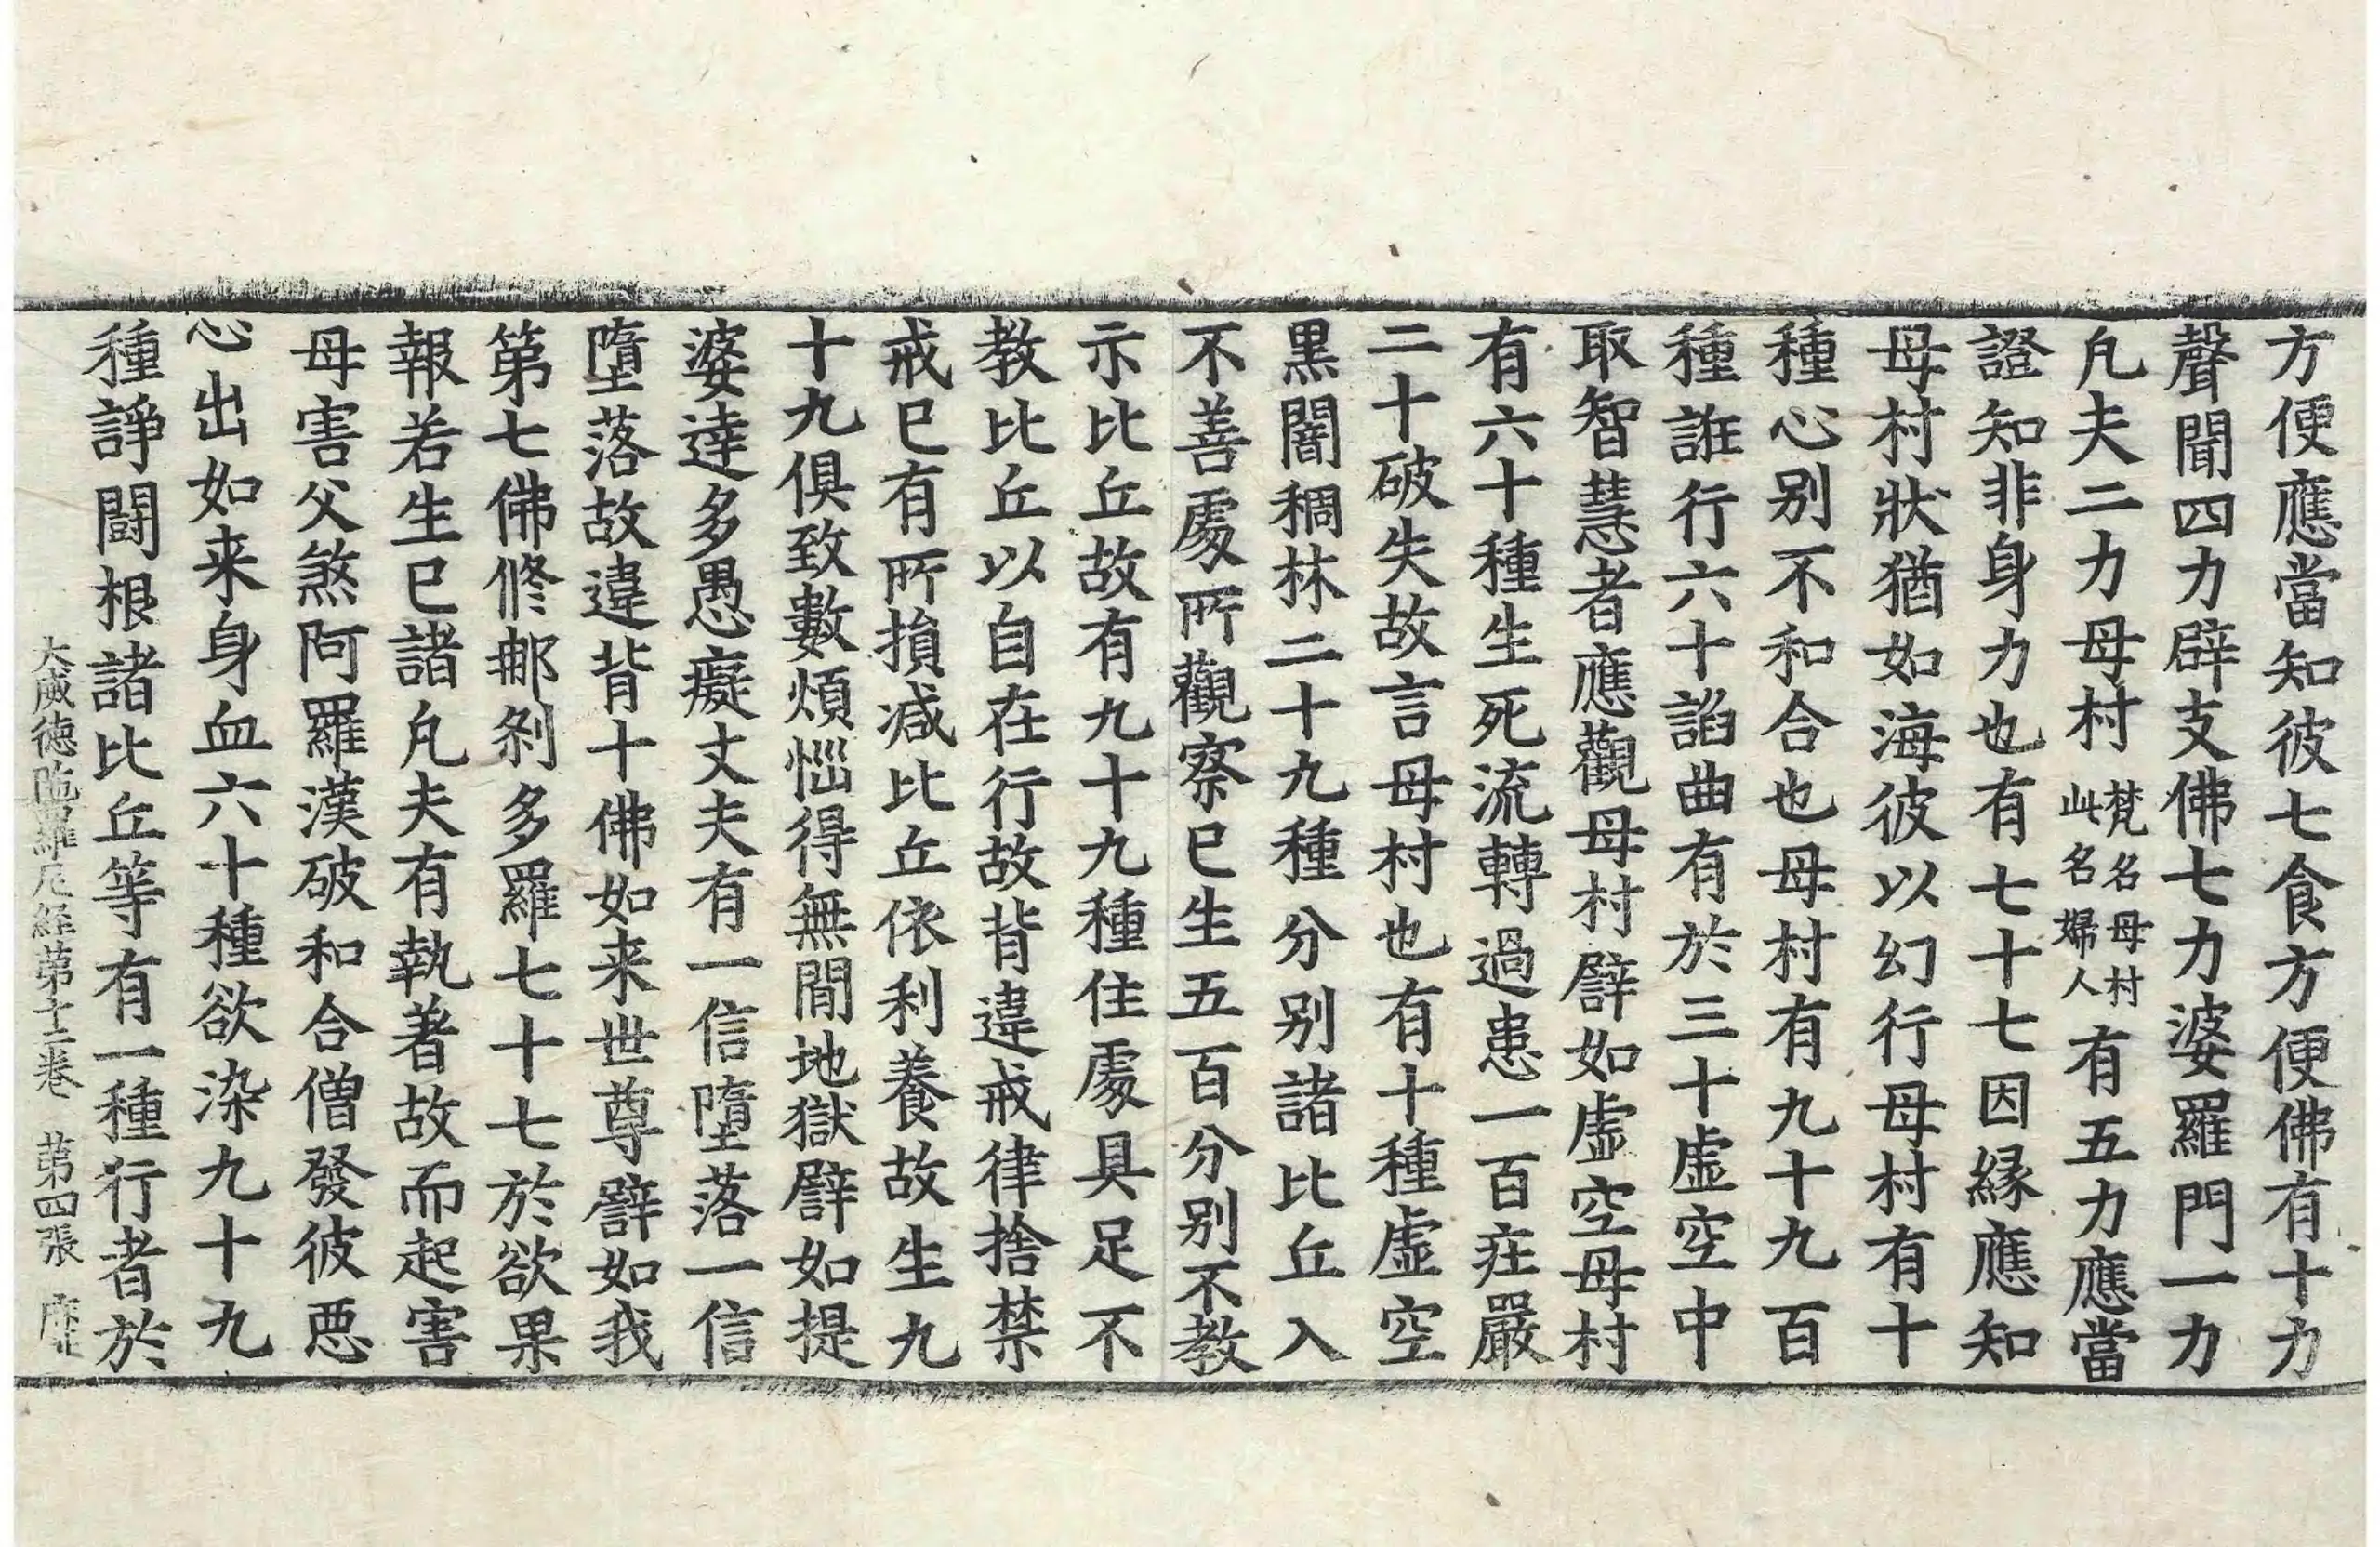 方便應當知彼七食方便佛有十力
聲聞四力辟支佛七力婆羅門一力
凡夫二力母村梵名母村此名婦人有五力應當
證知非身力也有七十七因縁應知
母村狀猶如海彼以幻行母村有十
種心别不和合也母村有九十九百
種誑行六十諂曲有於三十虛空中
取智慧者應觀母村譬如虛空母村
有六十種生死流轉過患一百庄嚴
二十破失故言母村也有十種虛空
黒闇稠林二十九種分别諸比丘入
不善處所觀察已生五百分别不教
示比丘故有九十九種住處具足不
教比丘以自在行故背違戒律捨禁
戒已有所損减比丘依利養故生九
十九俱致數煩惱得無間地獄譬如提
婆達多愚癡丈夫有一信墮落一信
墮落故違背十佛如来世尊譬如我
第七佛脩䣀剎多羅七十七於欲果
報若生已諸凡夫有執著故而起害
母害父煞阿羅漢破和合僧發彼悪
心出如来身血六十種欲染九十九
種諍闘根諸比丘等有一種行者於
大威徳陁羅尼経第十二卷 第四張